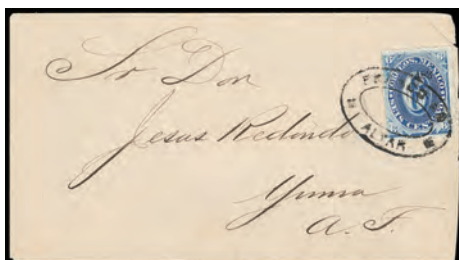 Sr Don
Jesus Redondo
Yuma
A. T.
MEXICO
6
ALTAR